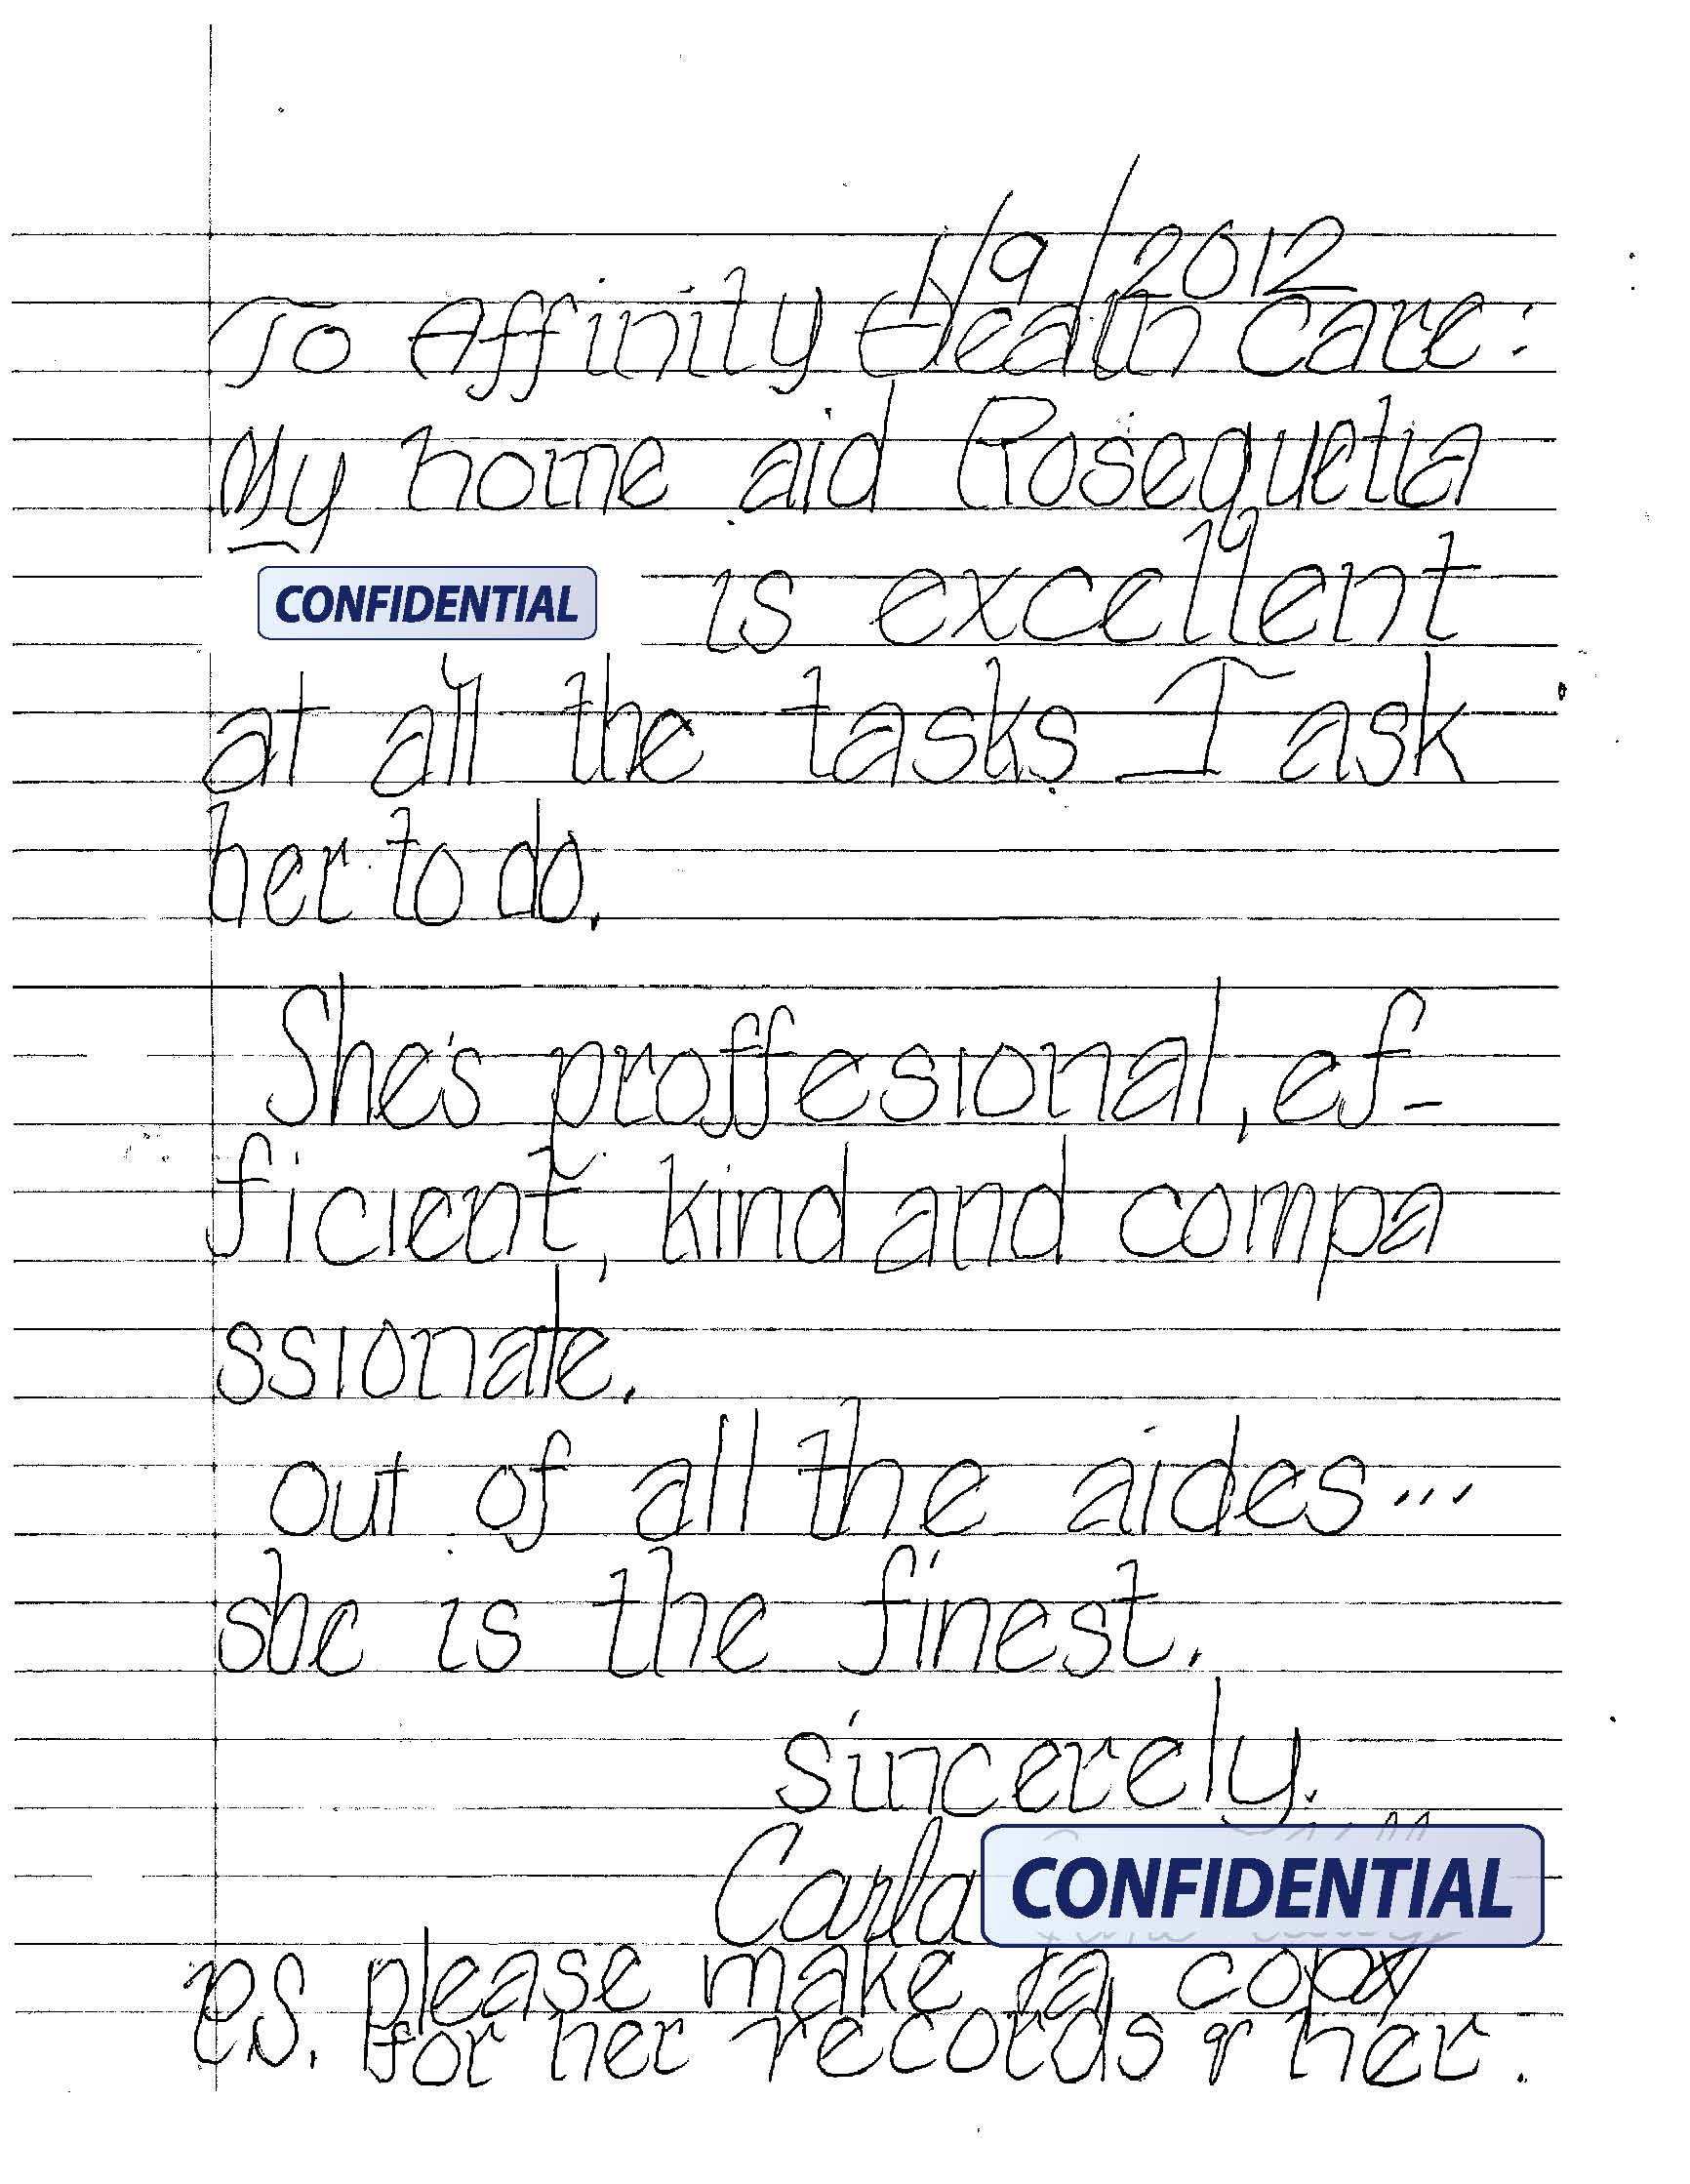 1/9/2012
To Affinity Health Care:
My home aid Rosequetta
CONFIDENTIAL is excellent
at all the tasks I ask
her to do.
She's proffesional, ef-
ficient, kind and compa
ssionate.
out of all the aides...
she is the finest.
sincerely,
Carla CONFIDENTIAL
P.S. please make a copy
for her records & her.